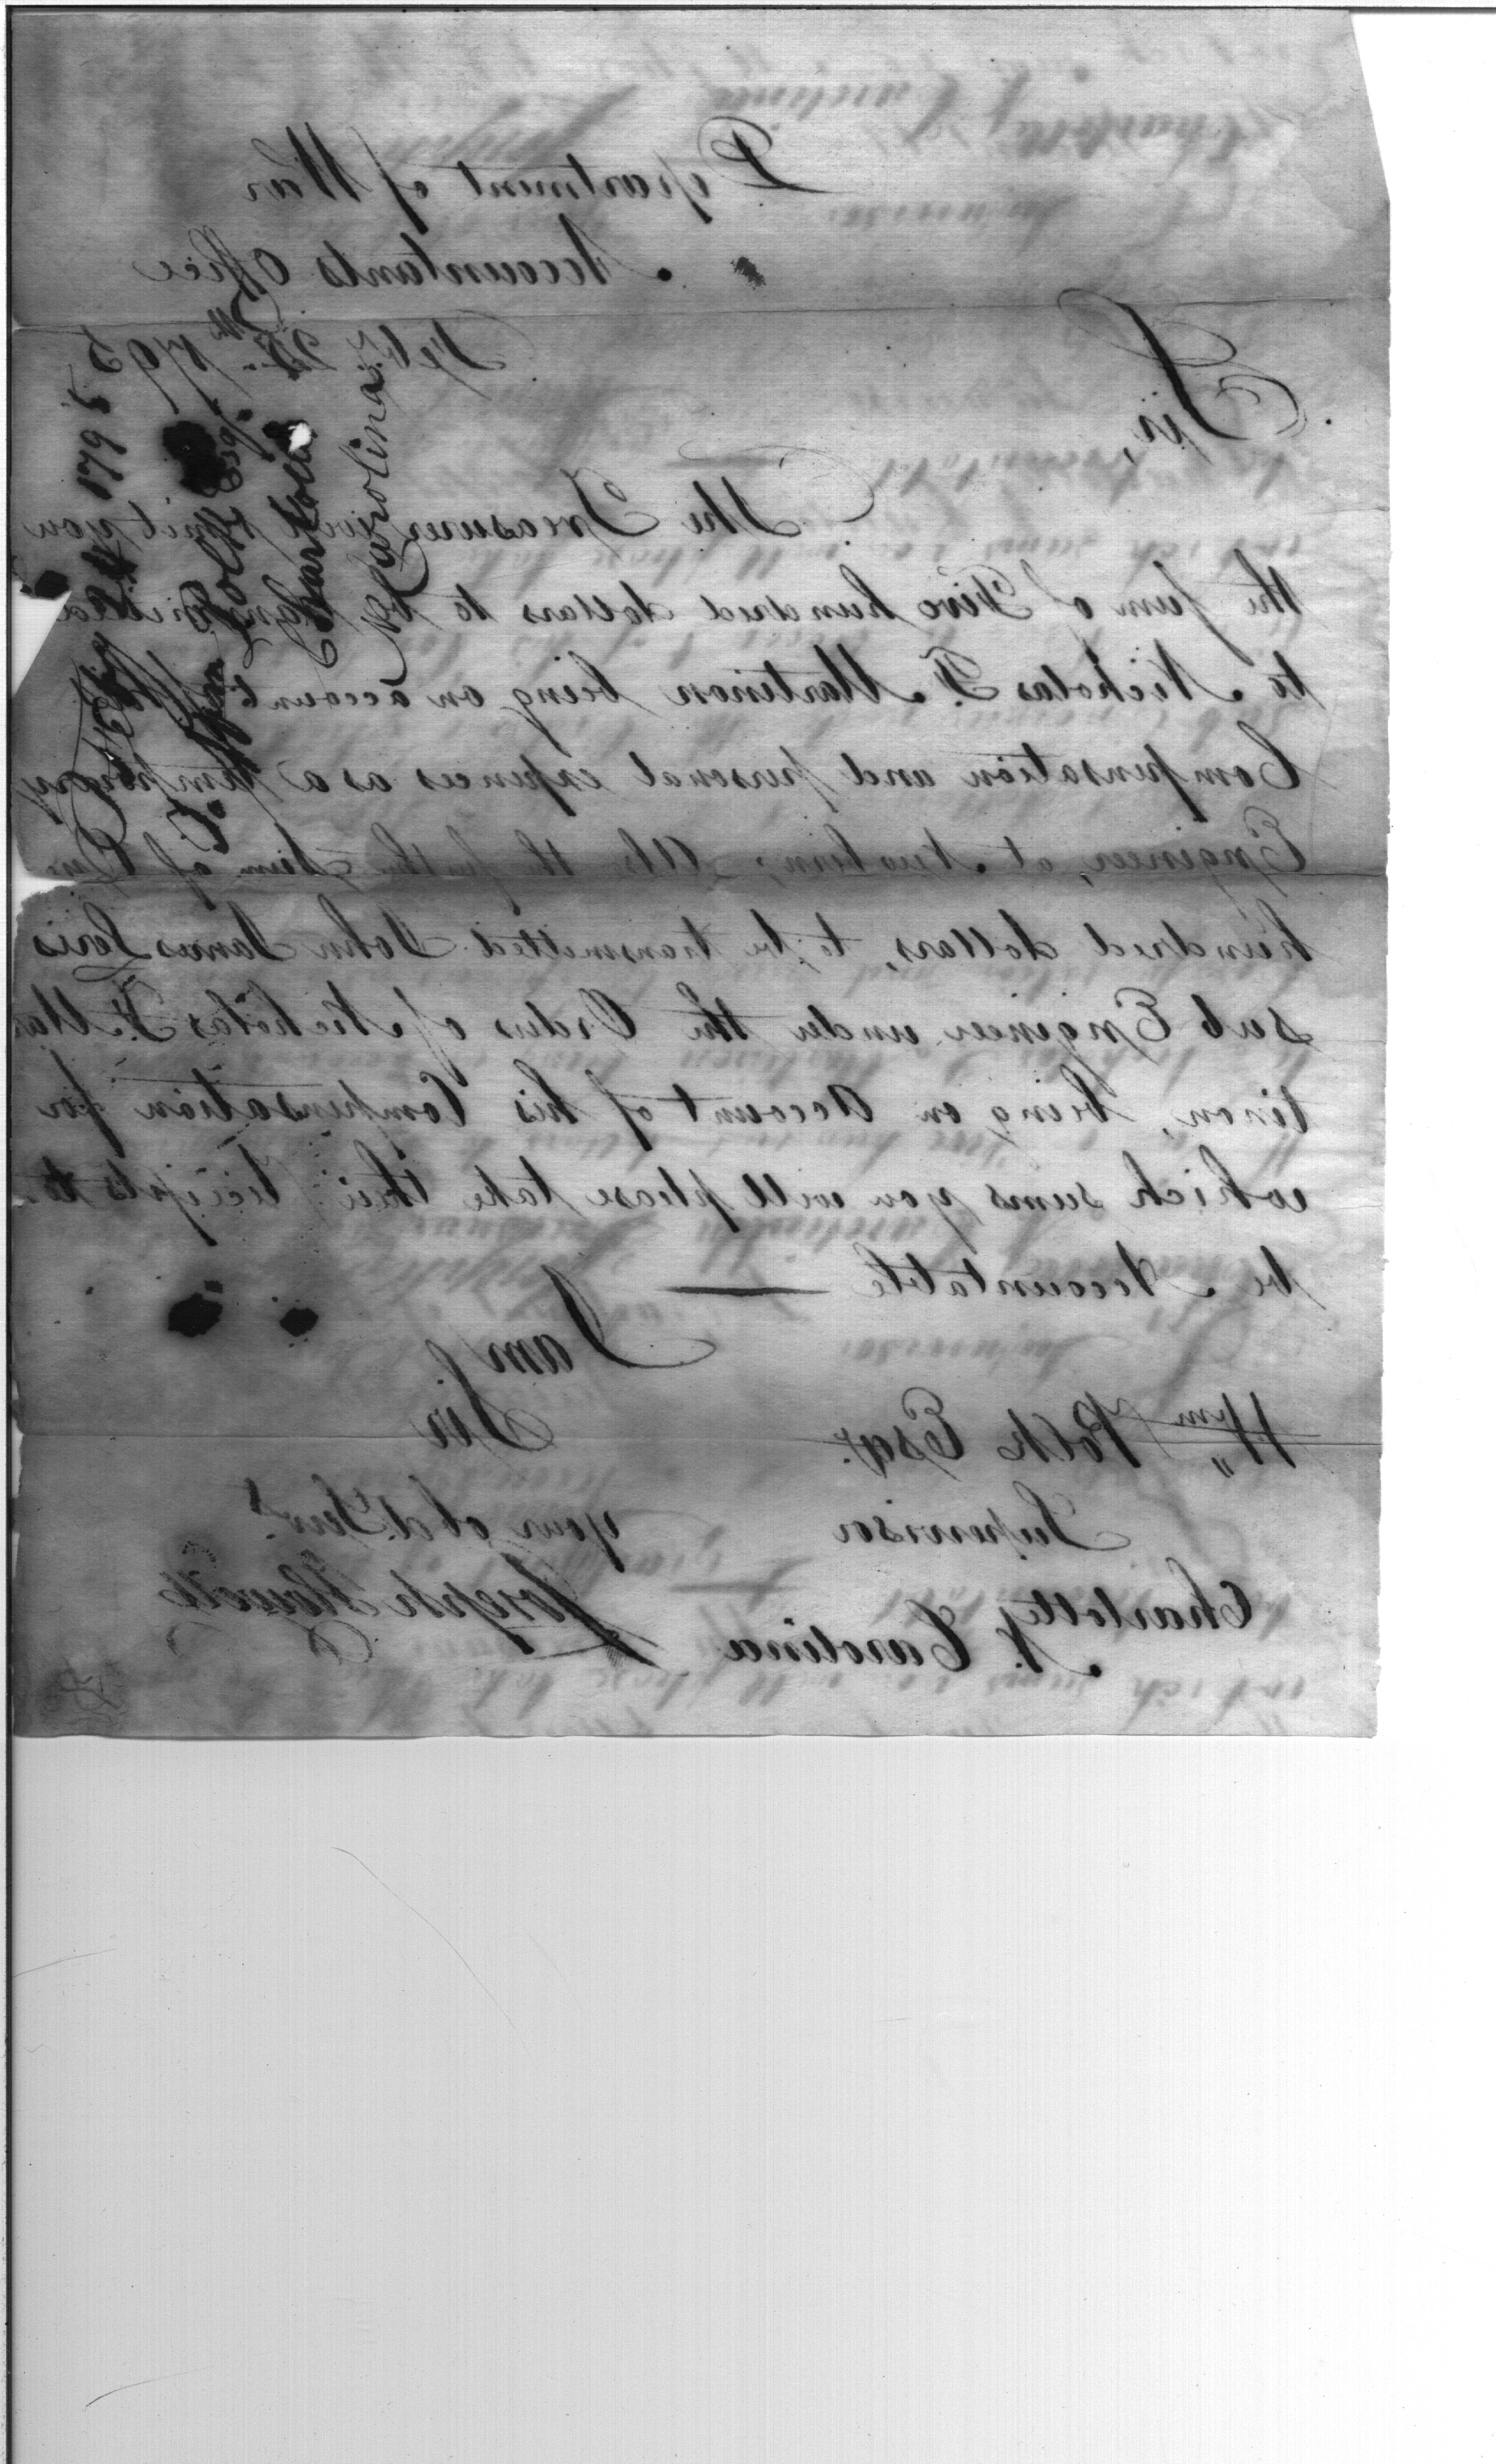 Department of War
Accountants Office
Feby. 24th. 1795
Sir,
The Treasurer will remit you
the sum of Five hundred dollars to be transmitted
to Nicholas F. Martinon being on account of his
Compensation and personal expences as a temporary
Engineer, at Newbern; Also the further sum of One
hundred dollars, to be transmitted John James Levis
sub Engineer under the Orders of Nicholas F. Mar
tinon, being on Account of his Compensation for
which sums you will please take their receipts to
be Accountable
I am
Sir
your obdt. Servt.
Joseph Howell
Wm. Polk Esqr.
Supervisor
Charlotte
N. Carolina
24 1795
Wm Polk Esqr.
Charlotte
N Carolina